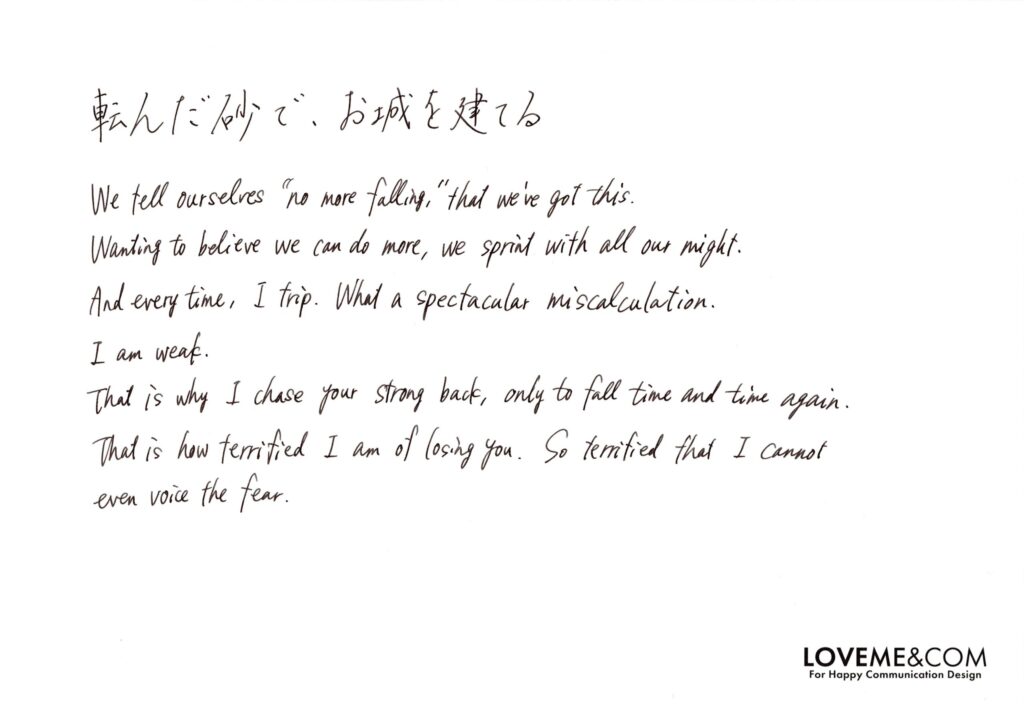 転んだ砂で、お城を建てる
We tell ourselves “no more falling,” that we've got this.
Wanting to believe we can do more, we sprint with all our might.
And every time, I trip. What a spectacular miscalculation.
I am weak.
That is why I chase your strong back, only to fall time and time again.
That is how terrified I am of losing you. So terrified that I cannot
even voice the fear.
LOVEME&COM
For Happy Communication Design